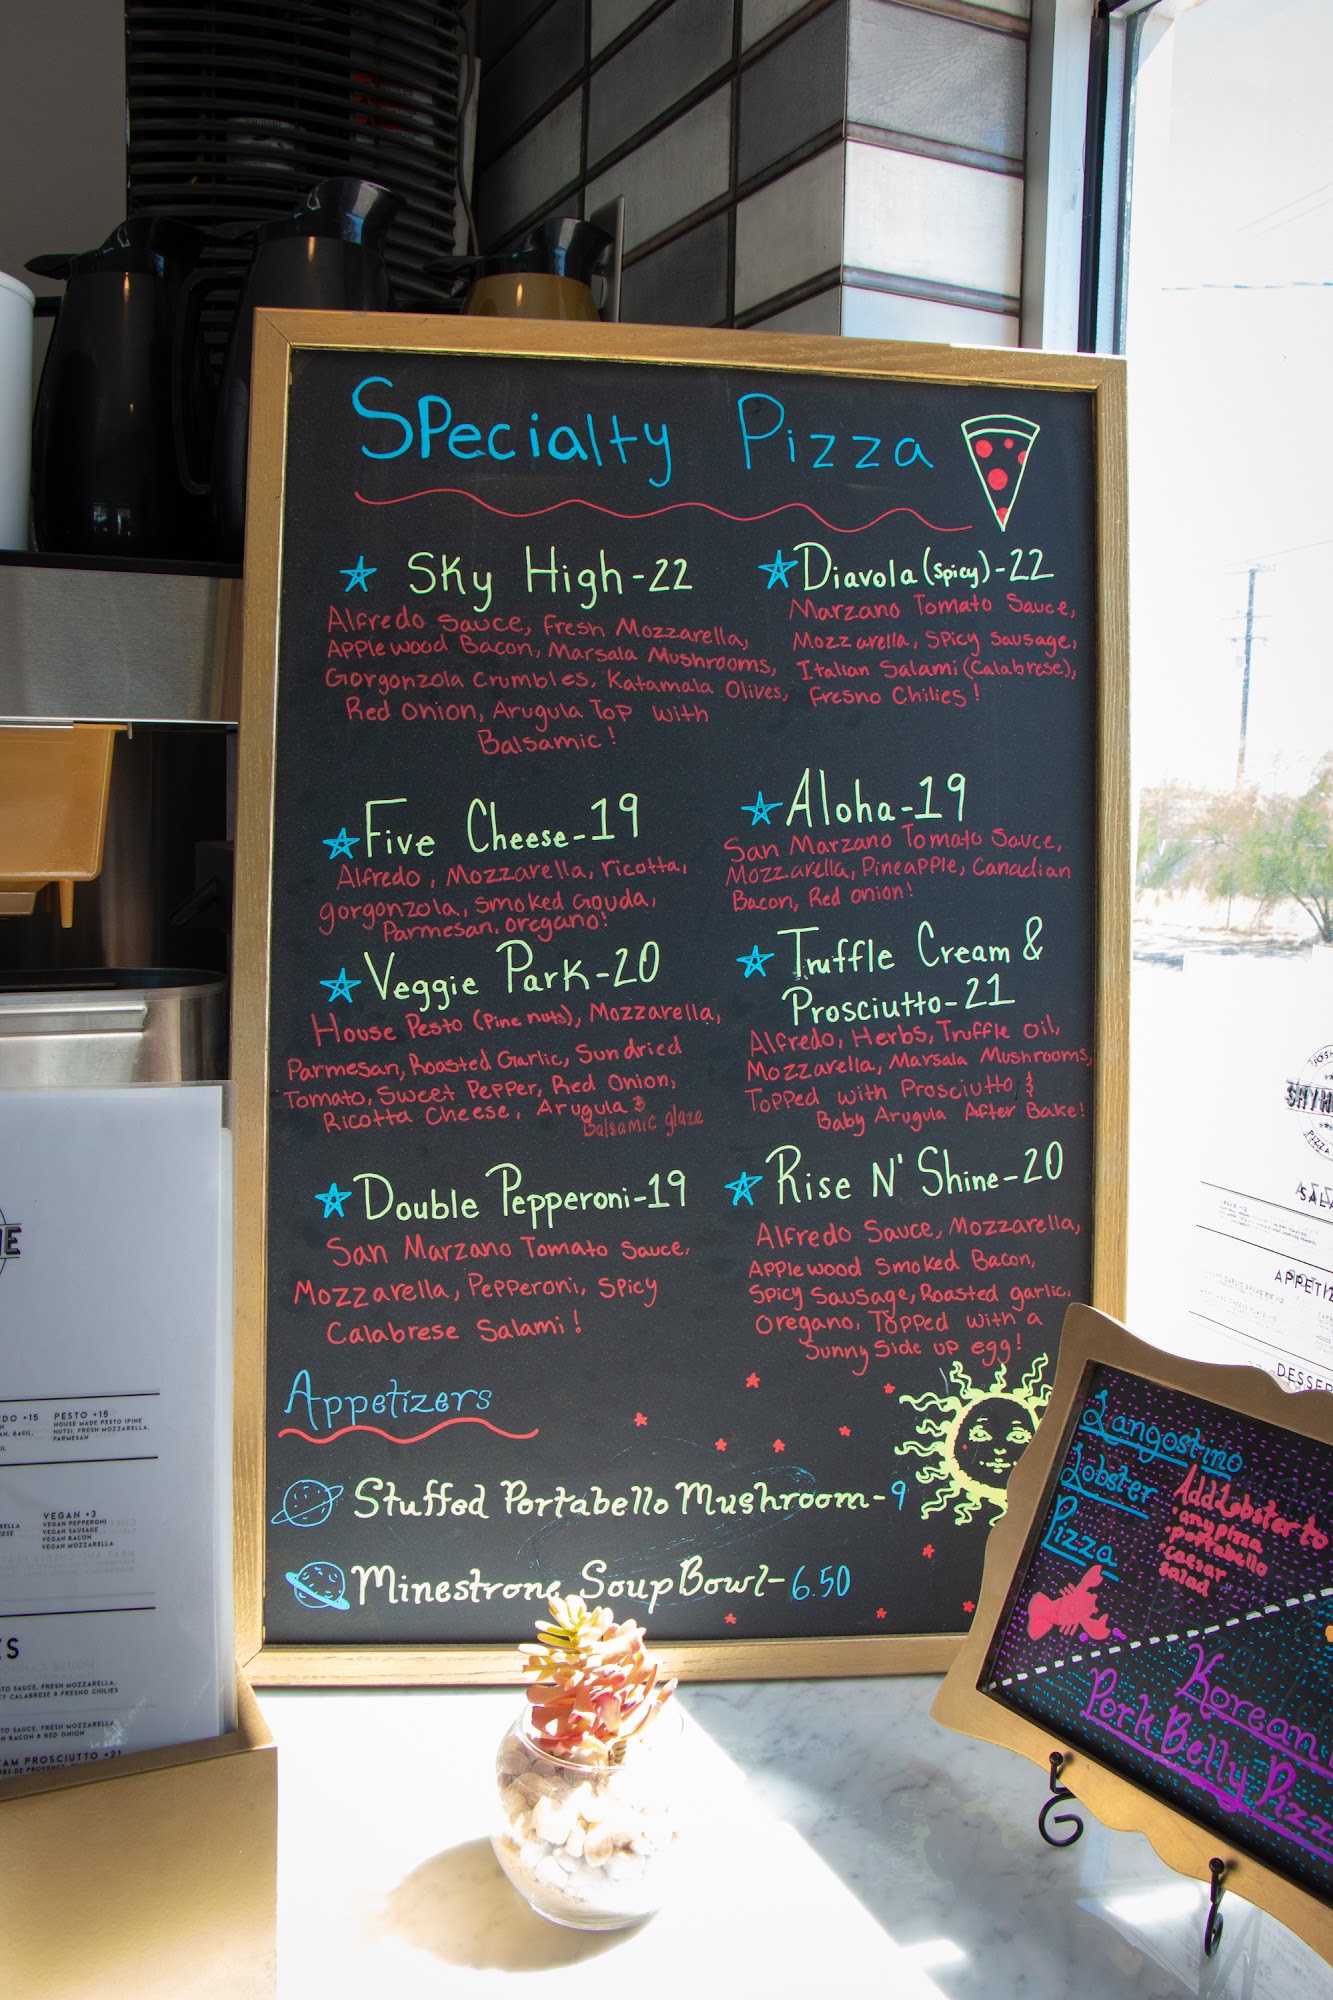 Specialty Pizza
Sky High-22
Alfredo Sauce, Fresh Mozzarella,
Applewood Bacon, Marsala Mushrooms,
Gorgonzola Crumbles, Katamala Olives,
Red Onion, Arugula Top with
Balsamic!
Diavola (spicy)-22
Marzano Tomato Sauce,
Mozzarella, Spicy Sausage,
Italian Salami (Calabrese),
Fresno Chilies!
Five Cheese-19
Alfredo, Mozzarella, ricotta,
gorgonzola, smoked Gouda,
Parmesan, oregano!
Aloha-19
San Marzano Tomato Sauce,
Mozzarella, Pineapple, Canadian
Bacon, Red onion!
Veggie Park-20
House Pesto (Pine nuts), Mozzarella,
Parmesan, Roasted Garlic, Sundried
Tomato, Sweet Pepper, Red Onion,
Ricotta Cheese, Arugula &
Balsamic glaze
Truffle Cream &
Prosciutto-21
Alfredo, Herbs, Truffle Oil,
Mozzarella, Marsala Mushrooms,
Topped with Prosciutto &
Baby Arugula After Bake!
Double Pepperoni-19
San Marzano Tomato Sauce,
Mozzarella, Pepperoni, Spicy
Calabrese Salami!
Rise N' Shine-20
Alfredo Sauce, Mozzarella,
Applewood Smoked Bacon,
Spicy Sausage, Roasted garlic,
Oregano, Topped with a
Sunny Side up egg!
Appetizers
Stuffed Portabello Mushroom-9
Minestrone Soup Bowl-6.50
Langostino
Lobster
Pizza
Add Lobster to
•any pizza
•portabello
•caesar
salad
Korean
Pork Belly Pizz
PESTO +15
HOUSE MADE PESTO (PINE
NUTS), FRESH MOZZARELLA,
PARMESAN
VEGAN +3
VEGAN PEPPERONI
VEGAN SAUSAGE
VEGAN BACON
VEGAN MOZZARELLA
TO SAUCE, FRESH MOZZARELLA,
CY CALABRESE & FRESNO CHILIES
TO SAUCE, FRESH MOZZARELLA,
BACON & RED ONION
AM PROSCIUTTO +21
PIZZA
SALA
APPETIZ
DESSER